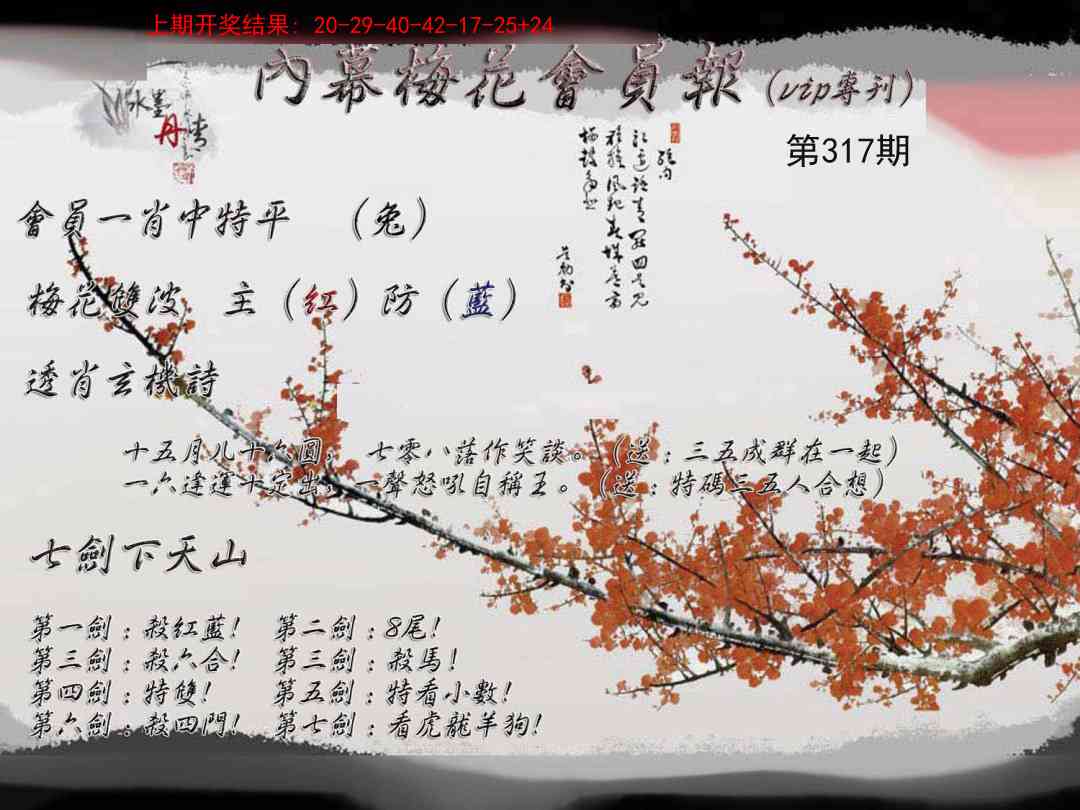 上期开奖结果: 20-29-40-42-17-25+24
內幕梅花會員報(vip專刊)
水墨
丹情
第317期
會員一肖中特平 （兔）
梅花雙波 主（紅）防（藍）
透肖玄機詩
十五月儿十六圓， 七零八落作笑談。（送：三五成群在一起）
一六逢運十定出，一聲怒吼自稱王。（送：特碼三五人合想）
七劍下天山
第一劍：殺紅藍! 第二劍：8尾!
第三劍：殺六合! 第三劍：殺馬!
第四劍：特雙! 第五劍：特看小數!
第六劍：殺四門! 第七劍：看虎龍羊狗!